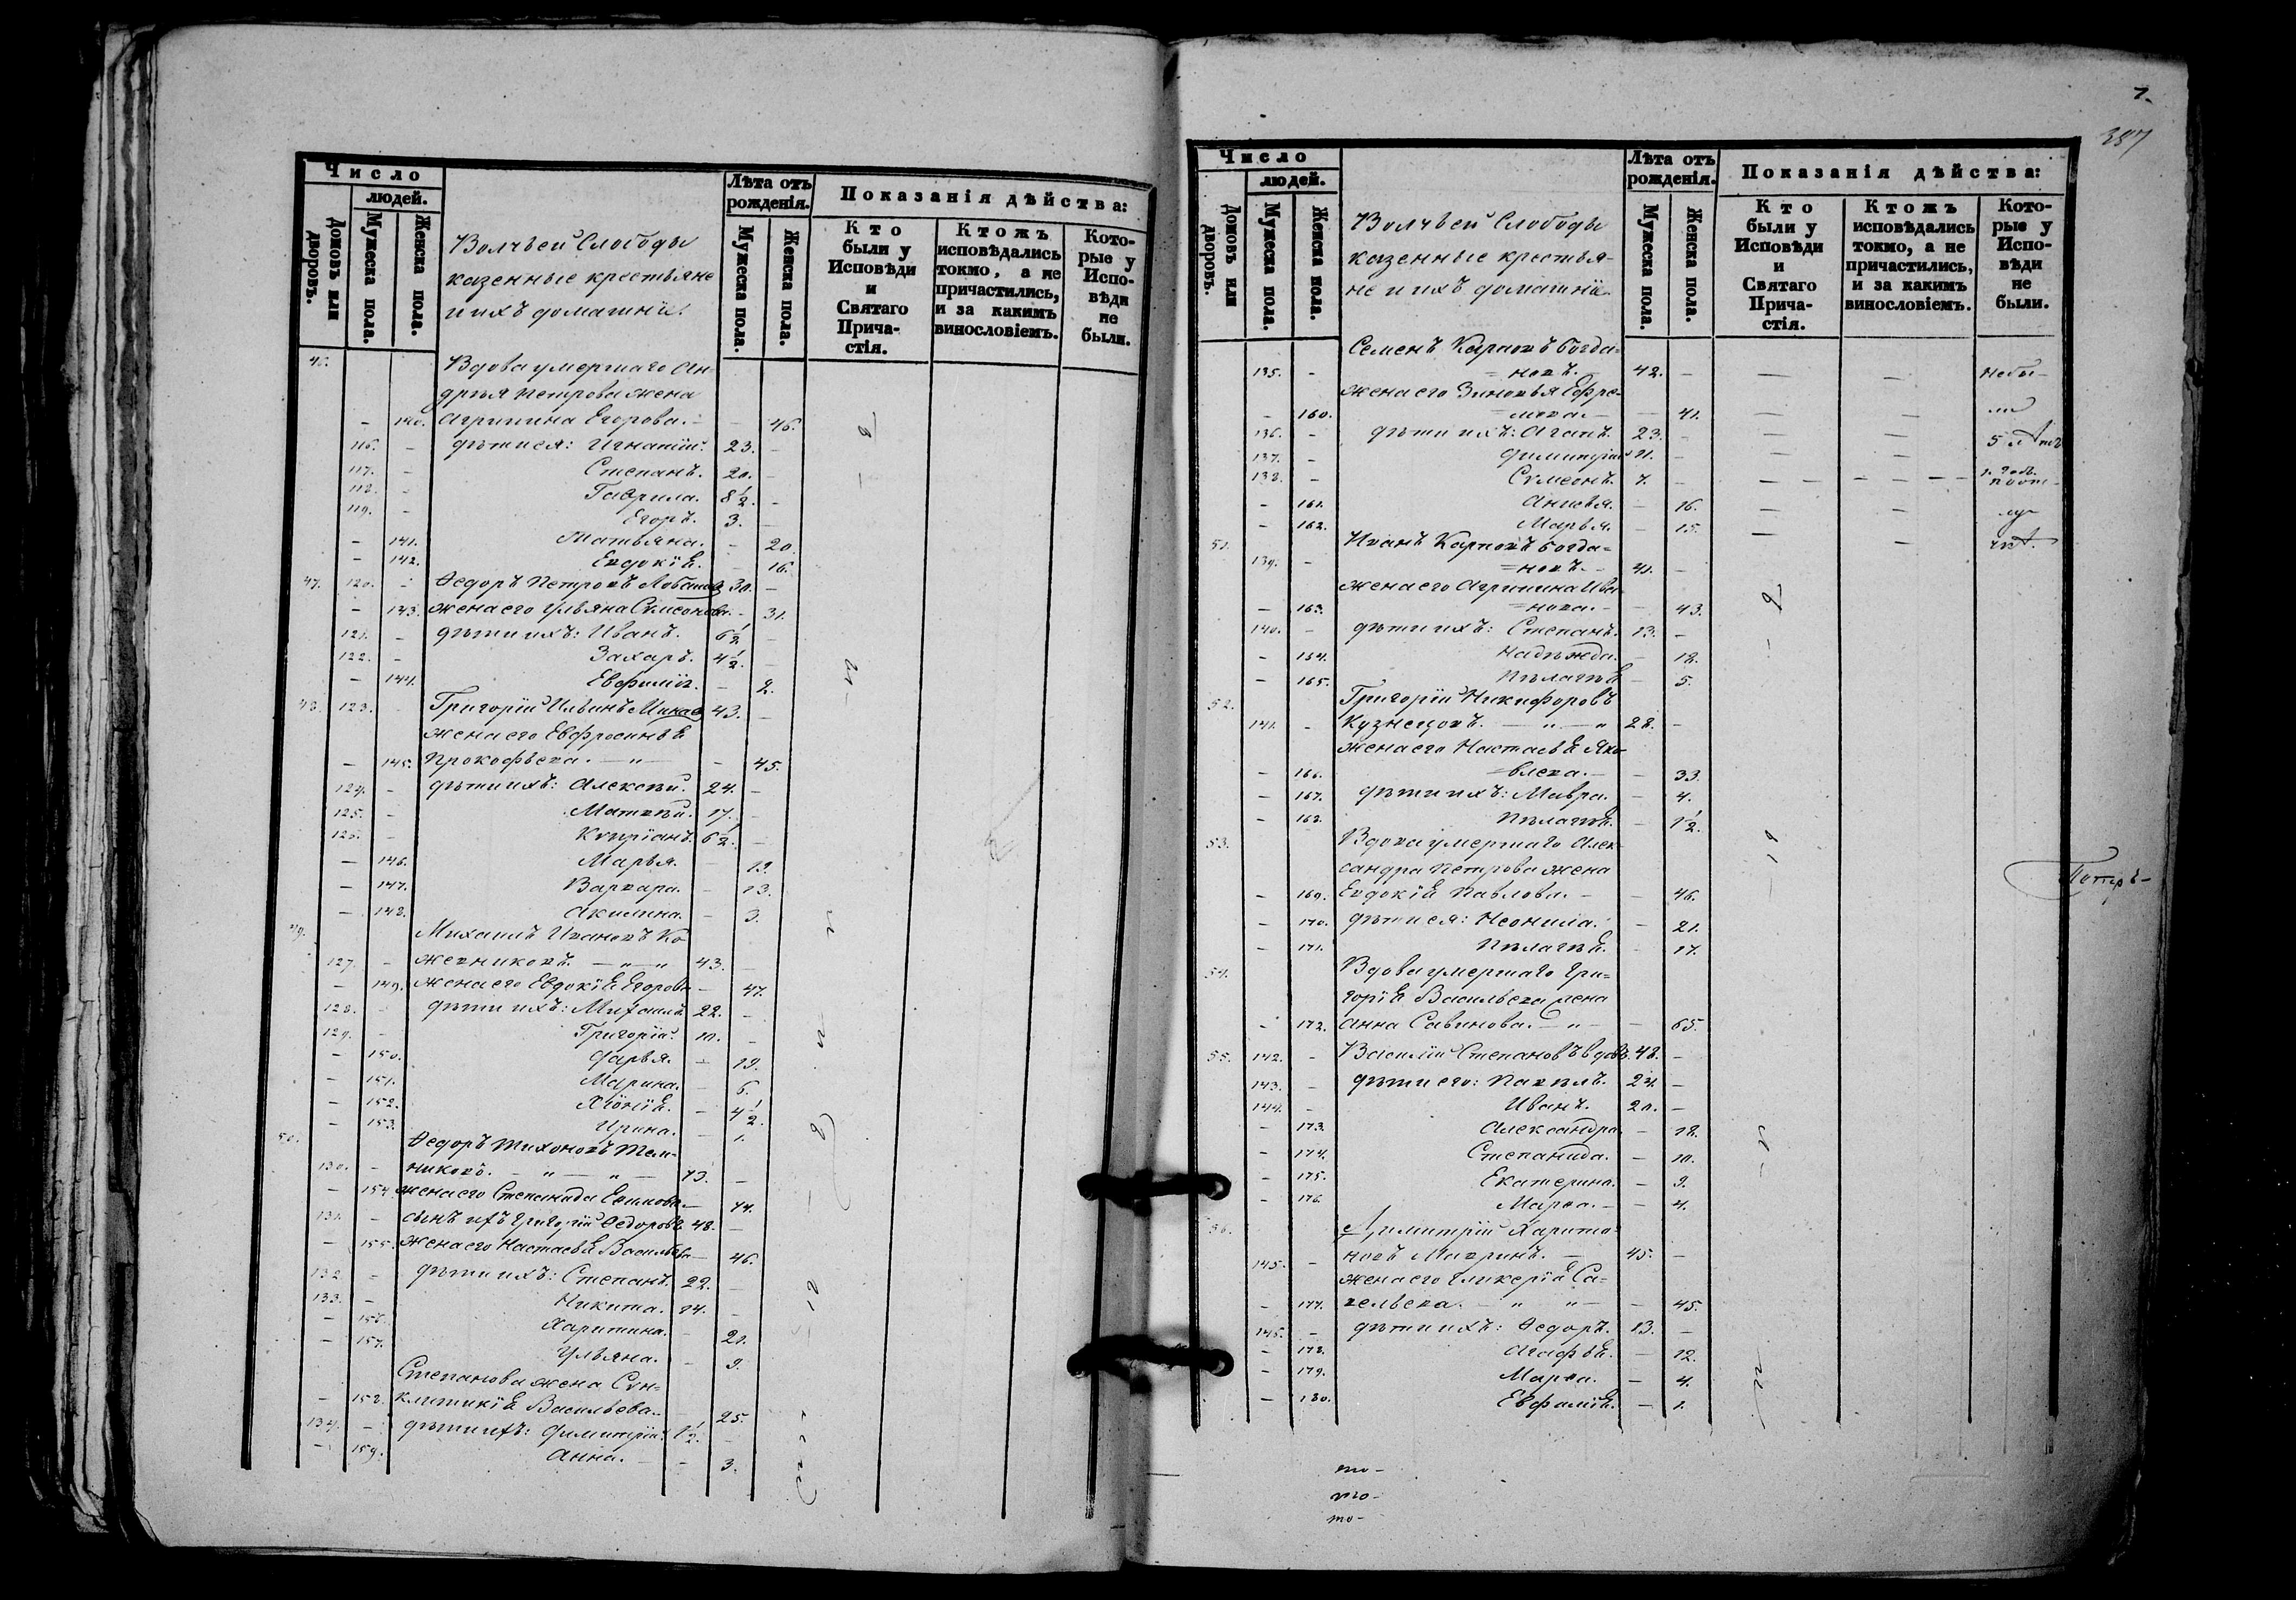 Число
людей.
Домовъ или дворовъ.
Мужеска пола.
Женска пола.
Волчьей Слободы
казенные крестьяне
и ихъ домашніе.
Лѣта отъ рожденія.
Мужеска пола.
Женска пола.
Показанія дѣйства:
Кто были у Исповѣди и Святаго Прича-стія.
Ктожъ исповѣдались токмо, а не причастились, и за какимъ винословіемъ.
Кото-рые у Испо-вѣди не были.
46. Вдова умершаго Ан-
дрея Петрова жена
– 140. Агрипина Егорова. – 46.
116. – дѣти ея: Игнатій. 23. –
117. – Степанъ. 20. –
118. – Гаврила. 8½. –
119. – Егоръ. 3. –
– 141. Татьяна. – 20.
– 142. Евдокія. – 16.
47. 120. – Ѳедоръ Петровъ Лобановъ 30. –
– 143. жена его Ульяна Сѵмеонова. – 31.
121. – дѣти ихъ: Иванъ. 6½ –
122. – Захаръ. 4½. –
– 144. Евфимія. – 2.
48. 123. – Григорій Ильинъ 43. –
жена его Евфросинья
– 145. Прокофьева. – 45.
124. – дѣти ихъ: Алексѣй. 24. –
125. – Матвѣй. 17. –
126. – Кѵпріанъ. 6½. –
– 146. Марья. – 19.
– 147. Варвара. – 13.
– 148. Акилина. – 3.
49. Михаилъ Ивановъ Ко-
127. – жевниковъ. 43. –
– 149. жена его Евдокія Егорова – 47.
128. – дѣти ихъ: Михаилъ 22. –
129. – Григорій. 10. –
– 150. Дарья. – 19.
– 151. Марина. – 6.
– 152. Хіонія. – 4½.
– 153. Ирина. – 1.
50. Ѳедоръ Тихоновъ Мель-
130. – никовъ. 73. –
– 154. жена его Степанида Екимова. – 74.
131. – сынъ ихъ Григорій Ѳедоровъ. 48. –
– 155. жена его Настасья Васильева – 46.
132. – дѣти ихъ: Степанъ. 22. –
133. – Никита. 14. –
– 156. Харитина. – 20.
– 157. Ульяна. – 9.
Степанова жена Сѵн-
– 158. клитикія Васильева. 25.
134. – дѣти ихъ: Димитрій. 1½. –
– 159. Анна. – 3.
7.
387
Число
людей.
Домовъ или дворовъ.
Мужеска пола.
Женска пола.
Волчьей Слободы
казенные крестья-
не и ихъ домашніе.
Лѣта отъ рожденія.
Мужеска пола.
Женска пола.
Показанія дѣйства:
Кто были у Исповѣди и Святаго Прича-стія.
Ктожъ исповѣдались токмо, а не причастились, и за какимъ винословіемъ.
Кото-рые у Испо-вѣди не были.
Семенъ Карповъ Богда=
135. – =новъ. 42. – – – небы-
жена его Зиновья Ефре-
– 160. =мова. – 41. – – ли
136. – дѣти ихъ: Агапъ. 23. – – – 5 лѣтъ
137. – Димитрій 21. – – –
138. – Сѵмеонъ. 7. – – –
– 161. Анисья. – 16. – –
– 162. Марья. – 15. – –
51. Иванъ Карповъ Богда=
139. – =новъ. 41. –
жена его Агрипина Ива
– 163. =нова. – 43.
140. – дѣти ихъ: Степанъ. 13. –
– 164. Надежда. – 12.
– 165. Пелагея – 5.
52. Григорій Никифоровъ
141. – Кузнецовъ. 28. –
жена его Настасья Яко
– 166. =влева. – 33.
– 167. дѣти ихъ: Мавра. – 4.
– 168. Пелагея. – 1½.
53. Вдова умершаго Алек-
сандра Петрова жена
– 169. Евдокія Павлова. – 46.
– 170. дѣти ея: Неонила. – 21.
– 171. Пелагея. – 17.
54. Вдова умершаго Гри=
горія Васильева жена
– 172. Анна Савинова. – 65.
55. 142. – Василій Степановъ вдовъ. 48. –
143. – дѣти его: Павелъ. 24. –
144. – Иванъ. 20. –
– 173. Александра. – 18.
– 174. Степанида. – 10.
– 175. Екатерина. – 9.
– 176. Марѳа. – 4.
56. Димитрій Харито-
145. – новъ 45. –
жена его Гликерія Са=
– 177. вельева. – 45.
145. – дѣти ихъ: Ѳедоръ. 13. –
– 178. Агафья. – 12.
– 179. Марѳа. – 4.
– 180. Евфимія. – 1.
то-
что-
то-